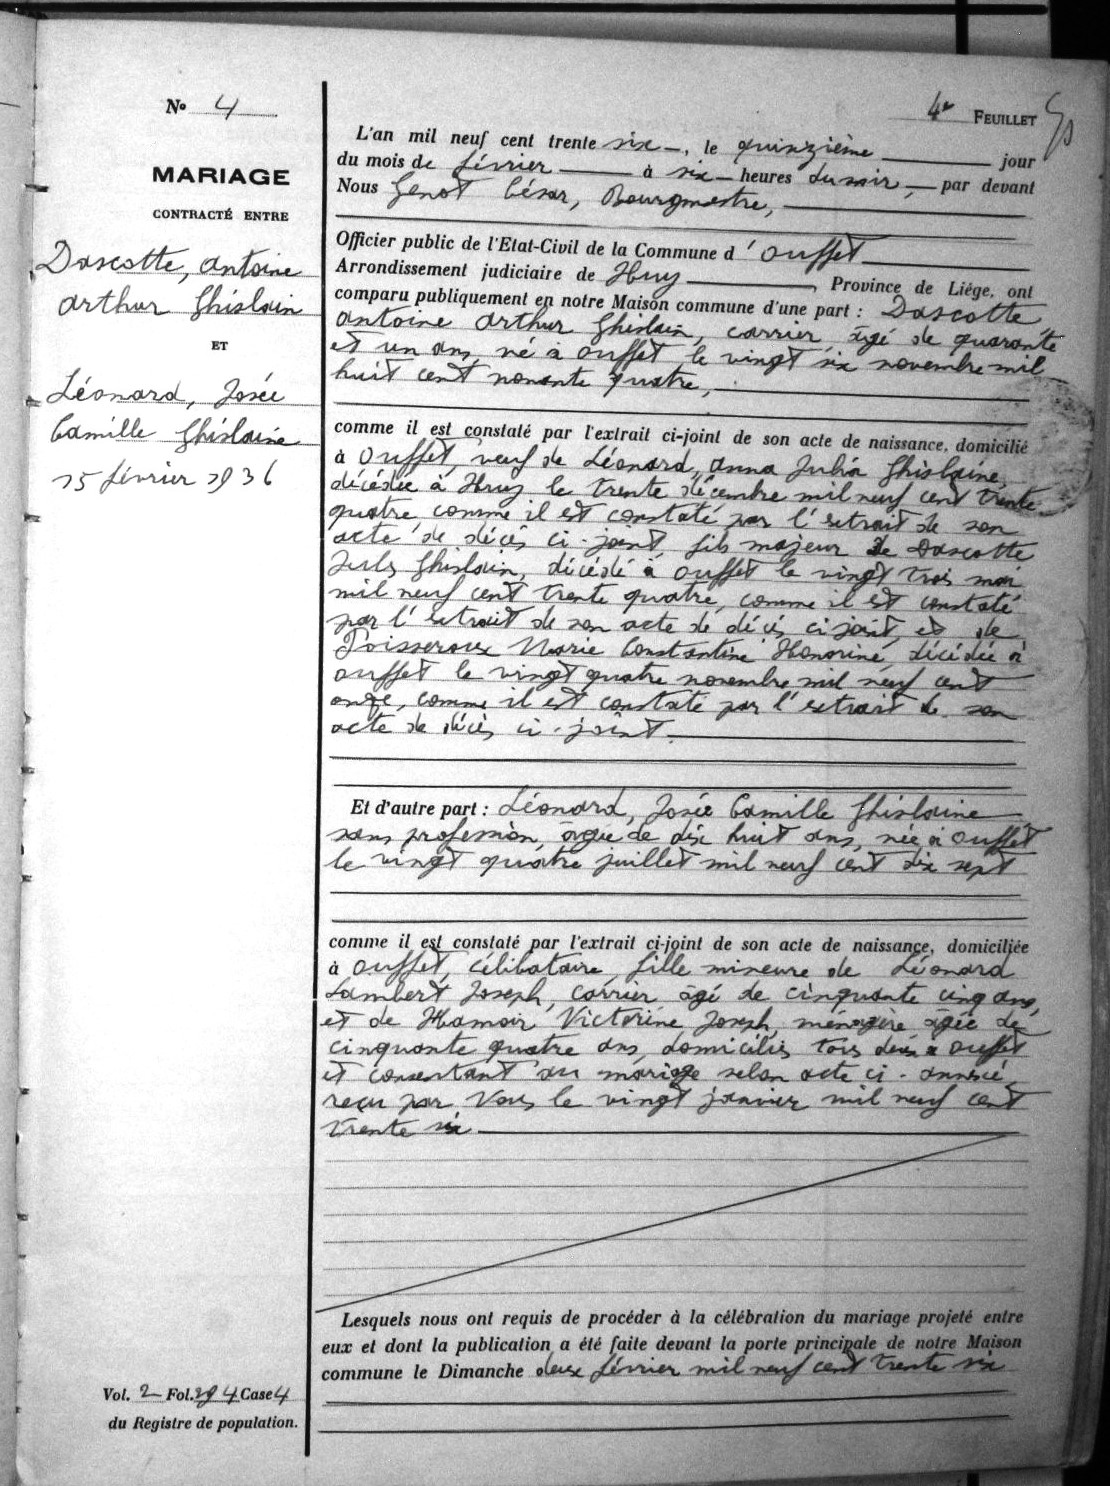 No 4
MARIAGE
CONTRACTÉ ENTRE
Dascotte, Antoine
Arthur Ghislain
ET
Léonard, Josée
Camille Ghislaine
15 février 1936
Vol. 2 Fol. 294 Case 4
du Registre de population.
4e FEUILLET
L'an mil neuf cent trente six –, le quinzième jour
du mois de février à six – heures du soir, – par devant
Nous Genot César, Bourgmestre,
Officier public de l'Etat-Civil de la Commune d' Ouffet
Arrondissement judiciaire de Huy, Province de Liége, ont
comparu publiquement en notre Maison commune d'une part : Dascotte
Antoine Arthur Ghislain, carrier, âgé de quarante
et un ans, né à Ouffet le vingt six novembre mil
huit cent nonante quatre,
comme il est constaté par l'extrait ci-joint de son acte de naissance, domicilié
à Ouffet, veuf de Léonard, Anna Julia Ghislaine,
décédée à Huy le trente décembre mil neuf cent trente
quatre comme il est constaté par l'extrait de son
acte de décès ci-joint, fils majeur de Dascotte
Jules Ghislain, décédé à Ouffet le vingt trois mai
mil neuf cent trente quatre, comme il est constaté
par l'extrait de son acte de décès ci joint, et de
Poisseroux Marie Constantine Honorine, décédée à
Ouffet le vingt quatre novembre mil neuf cent
onze, comme il est constaté par l'extrait de son
acte de décès ci-joint.
Et d'autre part : Léonard, Josée Camille Ghislaine
sans profession, âgée de dix huit ans, née à Ouffet
le vingt quatre juillet mil neuf cent dix sept
comme il est constaté par l'extrait ci-joint de son acte de naissance, domiciliée
à Ouffet, célibataire, fille mineure de Léonard
Lambert Joseph, carrier âgé de cinquante cinq ans,
et de Hamoir Victorine Joseph, ménagère âgée de
cinquante quatre ans, domiciliés tous deux à Ouffet
et consentant au mariage selon acte ci-annexé
reçu par Nous le vingt janvier mil neuf cent
trente six
Lesquels nous ont requis de procéder à la célébration du mariage projeté entre
eux et dont la publication a été faite devant la porte principale de notre Maison
commune le Dimanche deux février mil neuf cent trente six